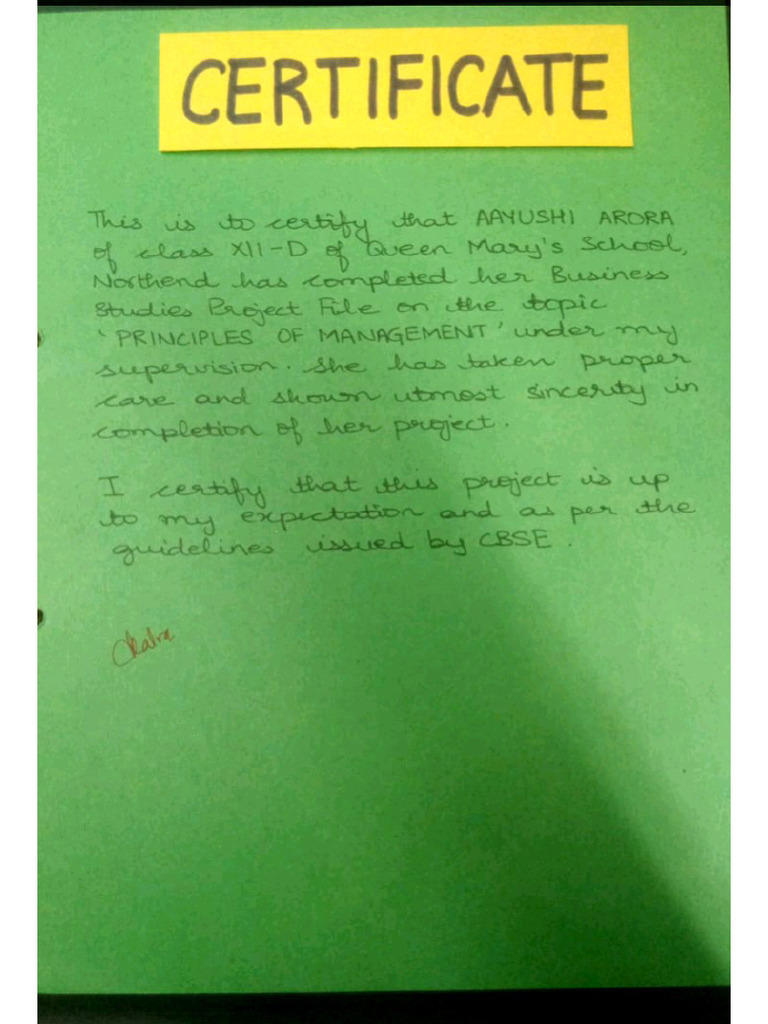 CERTIFICATE
This is to certify that AAYUSHI ARORA
of class XII-D of Queen Mary's School,
Northend has completed her Business
Studies Project File on the topic
'PRINCIPLES OF MANAGEMENT' under my
supervision. She has taken proper
care and shown utmost sincerity in
completion of her project.
I certify that this project is up
to my expectation and as per the
guidelines issued by CBSE.